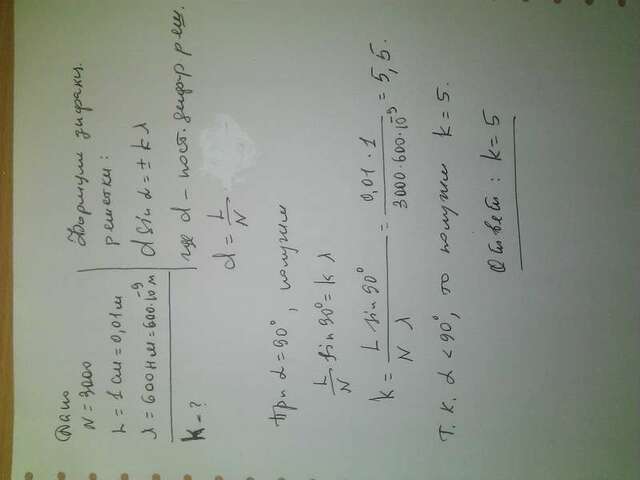 Дано
N = 3000
L = 1 см = 0,01 м
λ = 600 нм = 600·10⁻⁹ м
K - ?
Формула дифракц.
решетки:
d sin α = ± k λ
где d - пост. дифр реш.
d = L/N.
При α = 90°, получим
L/N sin 90° = k λ
k = L sin 90° / N λ = 0,01 · 1 / 3000·600·10⁻⁹ = 5,5.
Т.к. α < 90°, то получим k = 5.
Ответ: k = 5